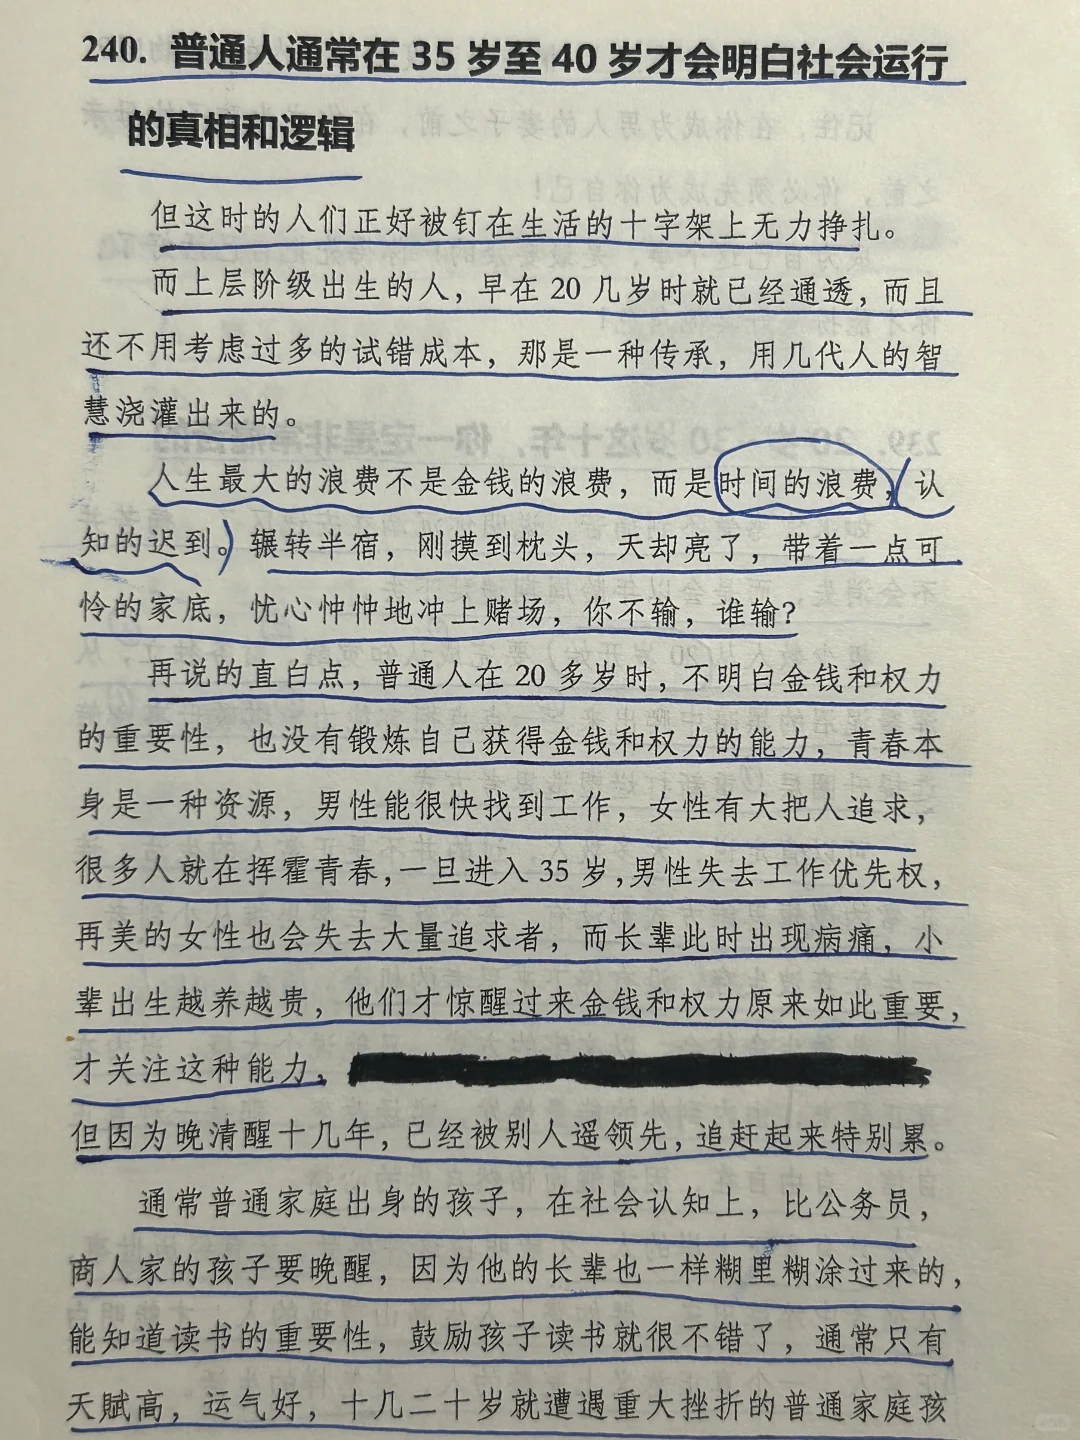 240. 普通人通常在 35 岁至 40 岁才会明白社会运行
的真相和逻辑
但这时的人们正好被钉在生活的十字架上无力挣扎。
而上层阶级出生的人，早在 20 几岁时就已经通透，而且
还不用考虑过多的试错成本，那是一种传承，用几代人的智
慧浇灌出来的。
人生最大的浪费不是金钱的浪费，而是时间的浪费，认
知的迟到。辗转半宿，刚摸到枕头，天却亮了，带着一点可
怜的家底，忧心忡忡地冲上赌场，你不输，谁输？
再说的直白点，普通人在 20 多岁时，不明白金钱和权力
的重要性，也没有锻炼自己获得金钱和权力的能力，青春本
身是一种资源，男性能很快找到工作，女性有大把人追求，
很多人就在挥霍青春，一旦进入 35 岁，男性失去工作优先权，
再美的女性也会失去大量追求者，而长辈此时出现病痛，小
辈出生越养越贵，他们才惊醒过来金钱和权力原来如此重要，
才关注这种能力，
但因为晚清醒十几年，已经被别人遥领先，追赶起来特别累。
通常普通家庭出身的孩子，在社会认知上，比公务员，
商人家的孩子要晚醒，因为他的长辈也一样糊里糊涂过来的，
能知道读书的重要性，鼓励孩子读书就很不错了，通常只有
天赋高，运气好，十几二十岁就遭遇重大挫折的普通家庭孩